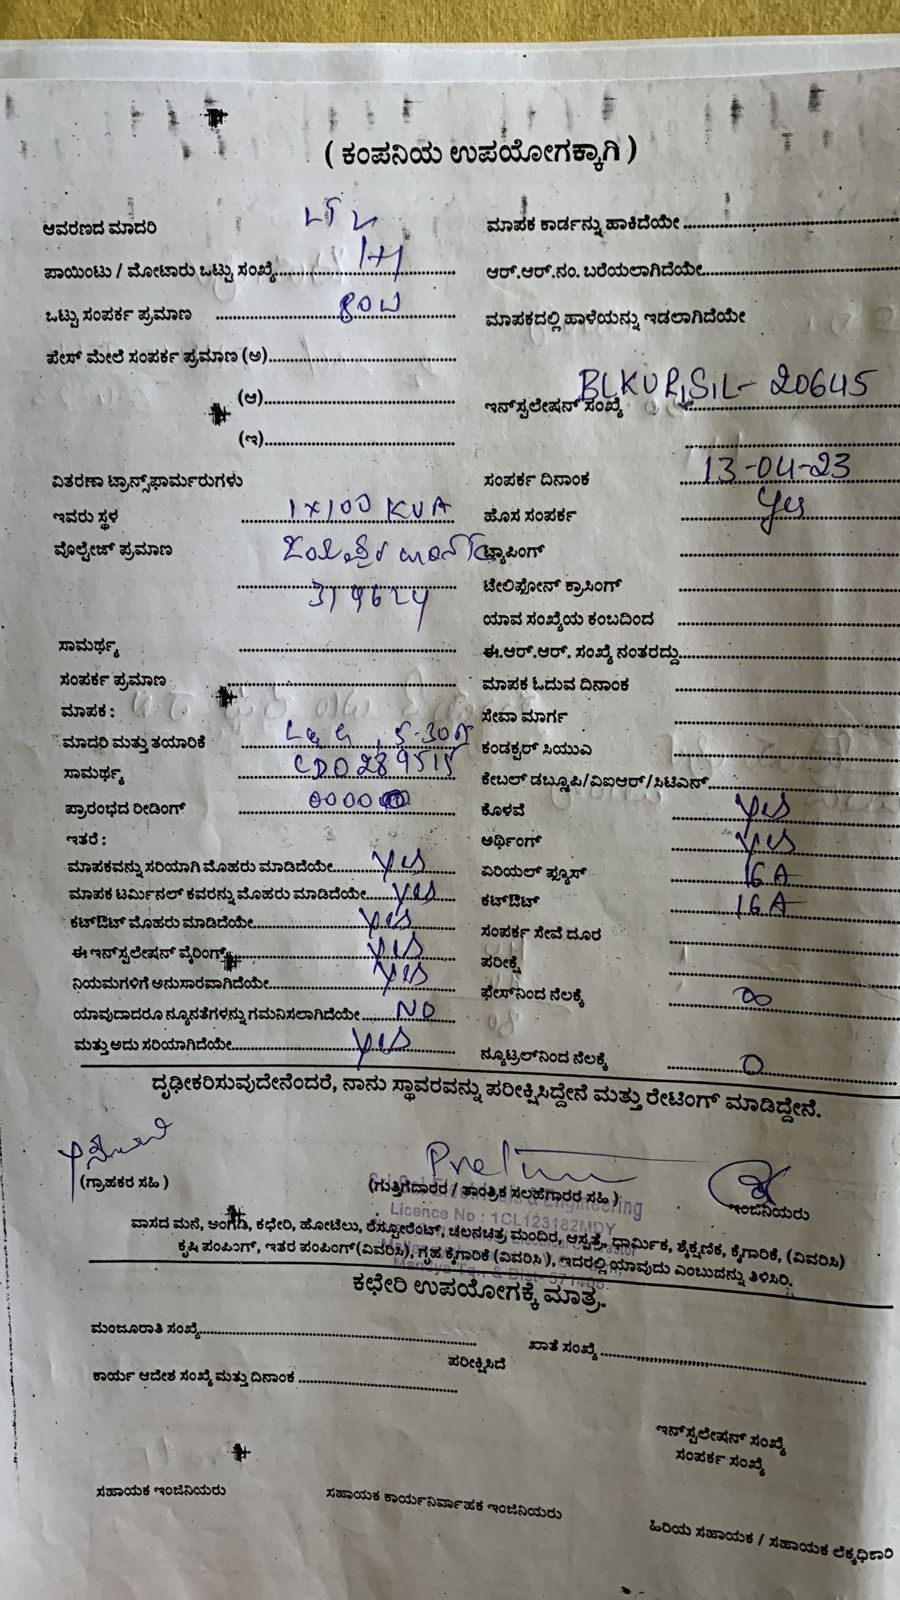 ( ಕಂಪನಿಯ ಉಪಯೋಗಕ್ಕಾಗಿ )
ಆವರಣದ ಮಾದರಿ
ಪಾಯಿಂಟು / ಮೋಟಾರು ಒಟ್ಟು ಸಂಖ್ಯೆ 1+1
ಒಟ್ಟು ಸಂಪರ್ಕ ಪ್ರಮಾಣ 80W
ಪೇಸ್ ಮೇಲೆ ಸಂಪರ್ಕ ಪ್ರಮಾಣ (ಅ)
(ಆ)
(ಇ)
ವಿತರಣಾ ಟ್ರಾನ್ಸ್‌ಫಾರ್ಮರುಗಳು
ಇವರು ಸ್ಥಳ 1x100 KVA
ವೊಲ್ಟೇಜ್ ಪ್ರಮಾಣ
ಸಾಮರ್ಥ್ಯ
ಸಂಪರ್ಕ ಪ್ರಮಾಣ
ಮಾಪಕ :
ಮಾದರಿ ಮತ್ತು ತಯಾರಿಕೆ L&G, 5-30A
ಸಾಮರ್ಥ್ಯ
ಪ್ರಾರಂಭದ ರೀಡಿಂಗ್
ಇತರೆ :
ಮಾಪಕವನ್ನು ಸರಿಯಾಗಿ ಮೊಹರು ಮಾಡಿದೆಯೇ yes
ಮಾಪಕ ಟರ್ಮಿನಲ್ ಕವರನ್ನು ಮೊಹರು ಮಾಡಿದೆಯೇ yes
ಕಟ್‌ಔಟ್ ಮೊಹರು ಮಾಡಿದೆಯೇ yes
ಈ ಇನ್‌ಸ್ಟಲೇಷನ್ ವೈರಿಂಗ್ yes
ನಿಯಮಗಳಿಗೆ ಅನುಸಾರವಾಗಿದೆಯೇ yes
ಯಾವುದಾದರೂ ನ್ಯೂನತೆಗಳನ್ನು ಗಮನಿಸಲಾಗಿದೆಯೇ NO
ಮತ್ತು ಅದು ಸರಿಯಾಗಿದೆಯೇ yes
ಮಾಪಕ ಕಾರ್ಡನ್ನು ಹಾಕಿದೆಯೇ
ಆರ್.ಆರ್.ನಂ. ಬರೆಯಲಾಗಿದೆಯೇ
ಮಾಪಕದಲ್ಲಿ ಹಾಳೆಯನ್ನು ಇಡಲಾಗಿದೆಯೇ
ಇನ್‌ಸ್ಟಲೇಷನ್ ಸಂಖ್ಯೆ 20645
ಸಂಪರ್ಕ ದಿನಾಂಕ 13-04-23
ಹೊಸ ಸಂಪರ್ಕ yes
ಟ್ಯಾಪಿಂಗ್
ಟೇಲಿಫೋನ್ ಕ್ರಾಸಿಂಗ್
ಯಾವ ಸಂಖ್ಯೆಯ ಕಂಬದಿಂದ
ಈ.ಆರ್.ಆರ್. ಸಂಖ್ಯೆ ನಂತರದ್ದು
ಮಾಪಕ ಓದುವ ದಿನಾಂಕ
ಸೇವಾ ಮಾರ್ಗ
ಕಂಡಕ್ಟರ್ ಸಿಯುವಿ
ಕೇಬಲ್ ಡಬ್ಲೂಪಿ/ವಿಐಆರ್/ಸಿಟಿಎನ್
ಕೊಳವೆ yes
ಅರ್ಥಿಂಗ್ yes
ಏರಿಯಲ್ ಫ್ಯೂಸ್ 16A
ಕಟ್‌ಔಟ್ 16A
ಸಂಪರ್ಕ ಸೇವೆ ದೂರ
ಪರೀಕ್ಷೆ
ಫೇಸ್‌ನಿಂದ ನೆಲಕ್ಕೆ ∞
ನ್ಯೂಟ್ರಲ್‌ನಿಂದ ನೆಲಕ್ಕೆ 0
ದೃಢೀಕರಿಸುವುದೇನೆಂದರೆ, ನಾನು ಸ್ಥಾವರವನ್ನು ಪರೀಕ್ಷಿಸಿದ್ದೇನೆ ಮತ್ತು ರೇಟಿಂಗ್ ಮಾಡಿದ್ದೇನೆ.
(ಗ್ರಾಹಕರ ಸಹಿ )
(ಗುತ್ತಿಗೆದಾರರ / ತಾಂತ್ರಿಕ ಸಲಹೆಗಾರರ ಸಹಿ )
ಇಂಜಿನಿಯರು
Licence No : 1CL123182MDY
ವಾಸದ ಮನೆ, ಅಂಗಡಿ, ಕಛೇರಿ, ಹೋಟೆಲು, ರೆಸ್ಟೋರೆಂಟ್, ಚಲನಚಿತ್ರ ಮಂದಿರ, ಆಸ್ಪತ್ರೆ, ಧಾರ್ಮಿಕ, ಶೈಕ್ಷಣಿಕ, ಕೈಗಾರಿಕೆ, (ವಿವರಿಸಿ)
ಕೃಷಿ ಪಂಪಿಂಗ್, ಇತರ ಪಂಪಿಂಗ್(ವಿವರಿಸಿ), ಗೃಹ ಕೈಗಾರಿಕೆ (ವಿವರಿಸಿ ), ಇದರಲ್ಲಿ ಯಾವುದು ಎಂಬುದನ್ನು ತಿಳಿಸಿರಿ.
ಕಛೇರಿ ಉಪಯೋಗಕ್ಕೆ ಮಾತ್ರ.
ಮಂಜೂರಾತಿ ಸಂಖ್ಯೆ
ಖಾತೆ ಸಂಖ್ಯೆ
ಪರೀಕ್ಷಿಸಿದೆ
ಕಾರ್ಯ ಆದೇಶ ಸಂಖ್ಯೆ ಮತ್ತು ದಿನಾಂಕ
ಇನ್‌ಸ್ಟಲೇಷನ್ ಸಂಖ್ಯೆ
ಸಂಪರ್ಕ ಸಂಖ್ಯೆ
ಸಹಾಯಕ ಇಂಜಿನಿಯರು
ಸಹಾಯಕ ಕಾರ್ಯನಿರ್ವಾಹಕ ಇಂಜಿನಿಯರು
ಹಿರಿಯ ಸಹಾಯಕ / ಸಹಾಯಕ ಲೆಕ್ಕಧಿಕಾರಿ